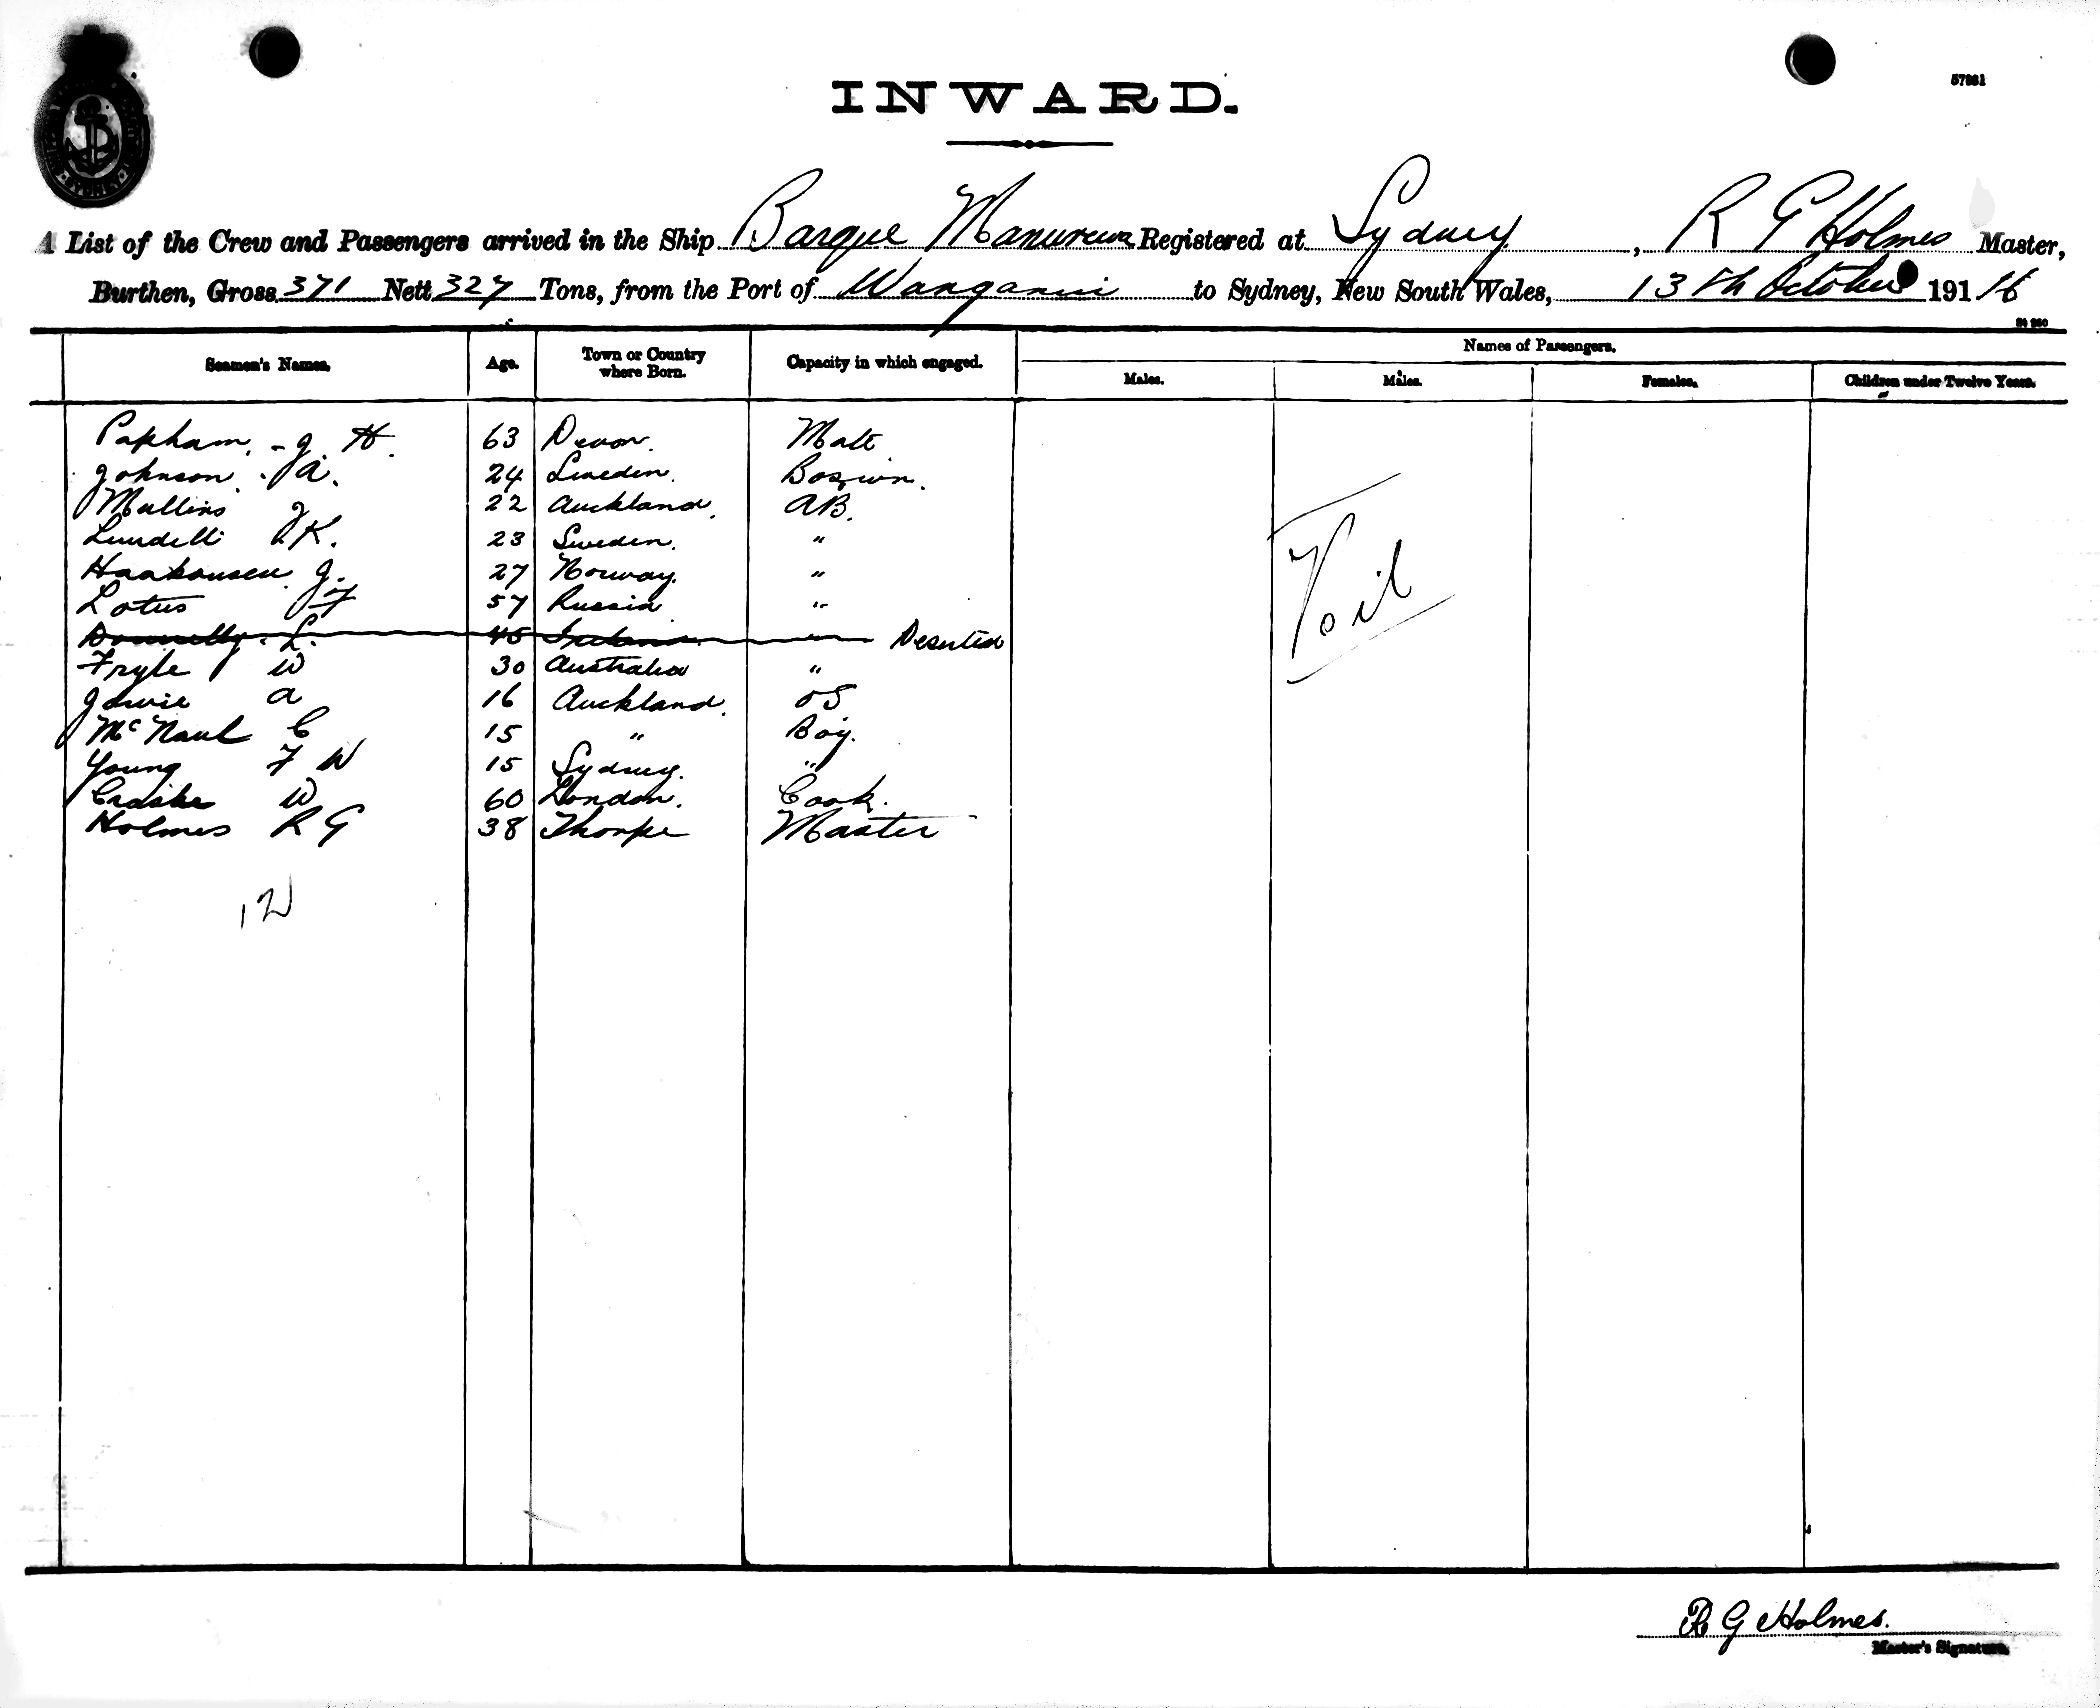 57981
INWARD.
A List of the Crew and Passengers arrived in the Ship Barque Manurewa Registered at Sydney, R G Holmes Master,
Burthen, Gross 371 Nett 327 Tons, from the Port of Wanganui to Sydney, New South Wales, 13th October 1916
Seamen's Names. Age. Town or Country where Born. Capacity in which engaged. Names of Passengers.
Males. Males. Females. Children under Twelve Years.
Popham, J. H. 63 Devon. Mate
Johnson. A. 24 Sweden. Boswn.
Mullins J 22 Auckland. AB.
Lundell K. 23 Sweden. "
Haakonsen J. 27 Norway. "
Lotus J 57 Russia "
Donnelly. L. 45 Ireland " Deserted
Fryle W 30 Australia "
Jowie A 16 Auckland. OS
McNaul C 15 " Boy.
Young F W 15 Sydney. "
Craske W 60 London. Cook.
Holmes R G 38 Thorpe Master
12
R G Holmes.
Master's Signature.